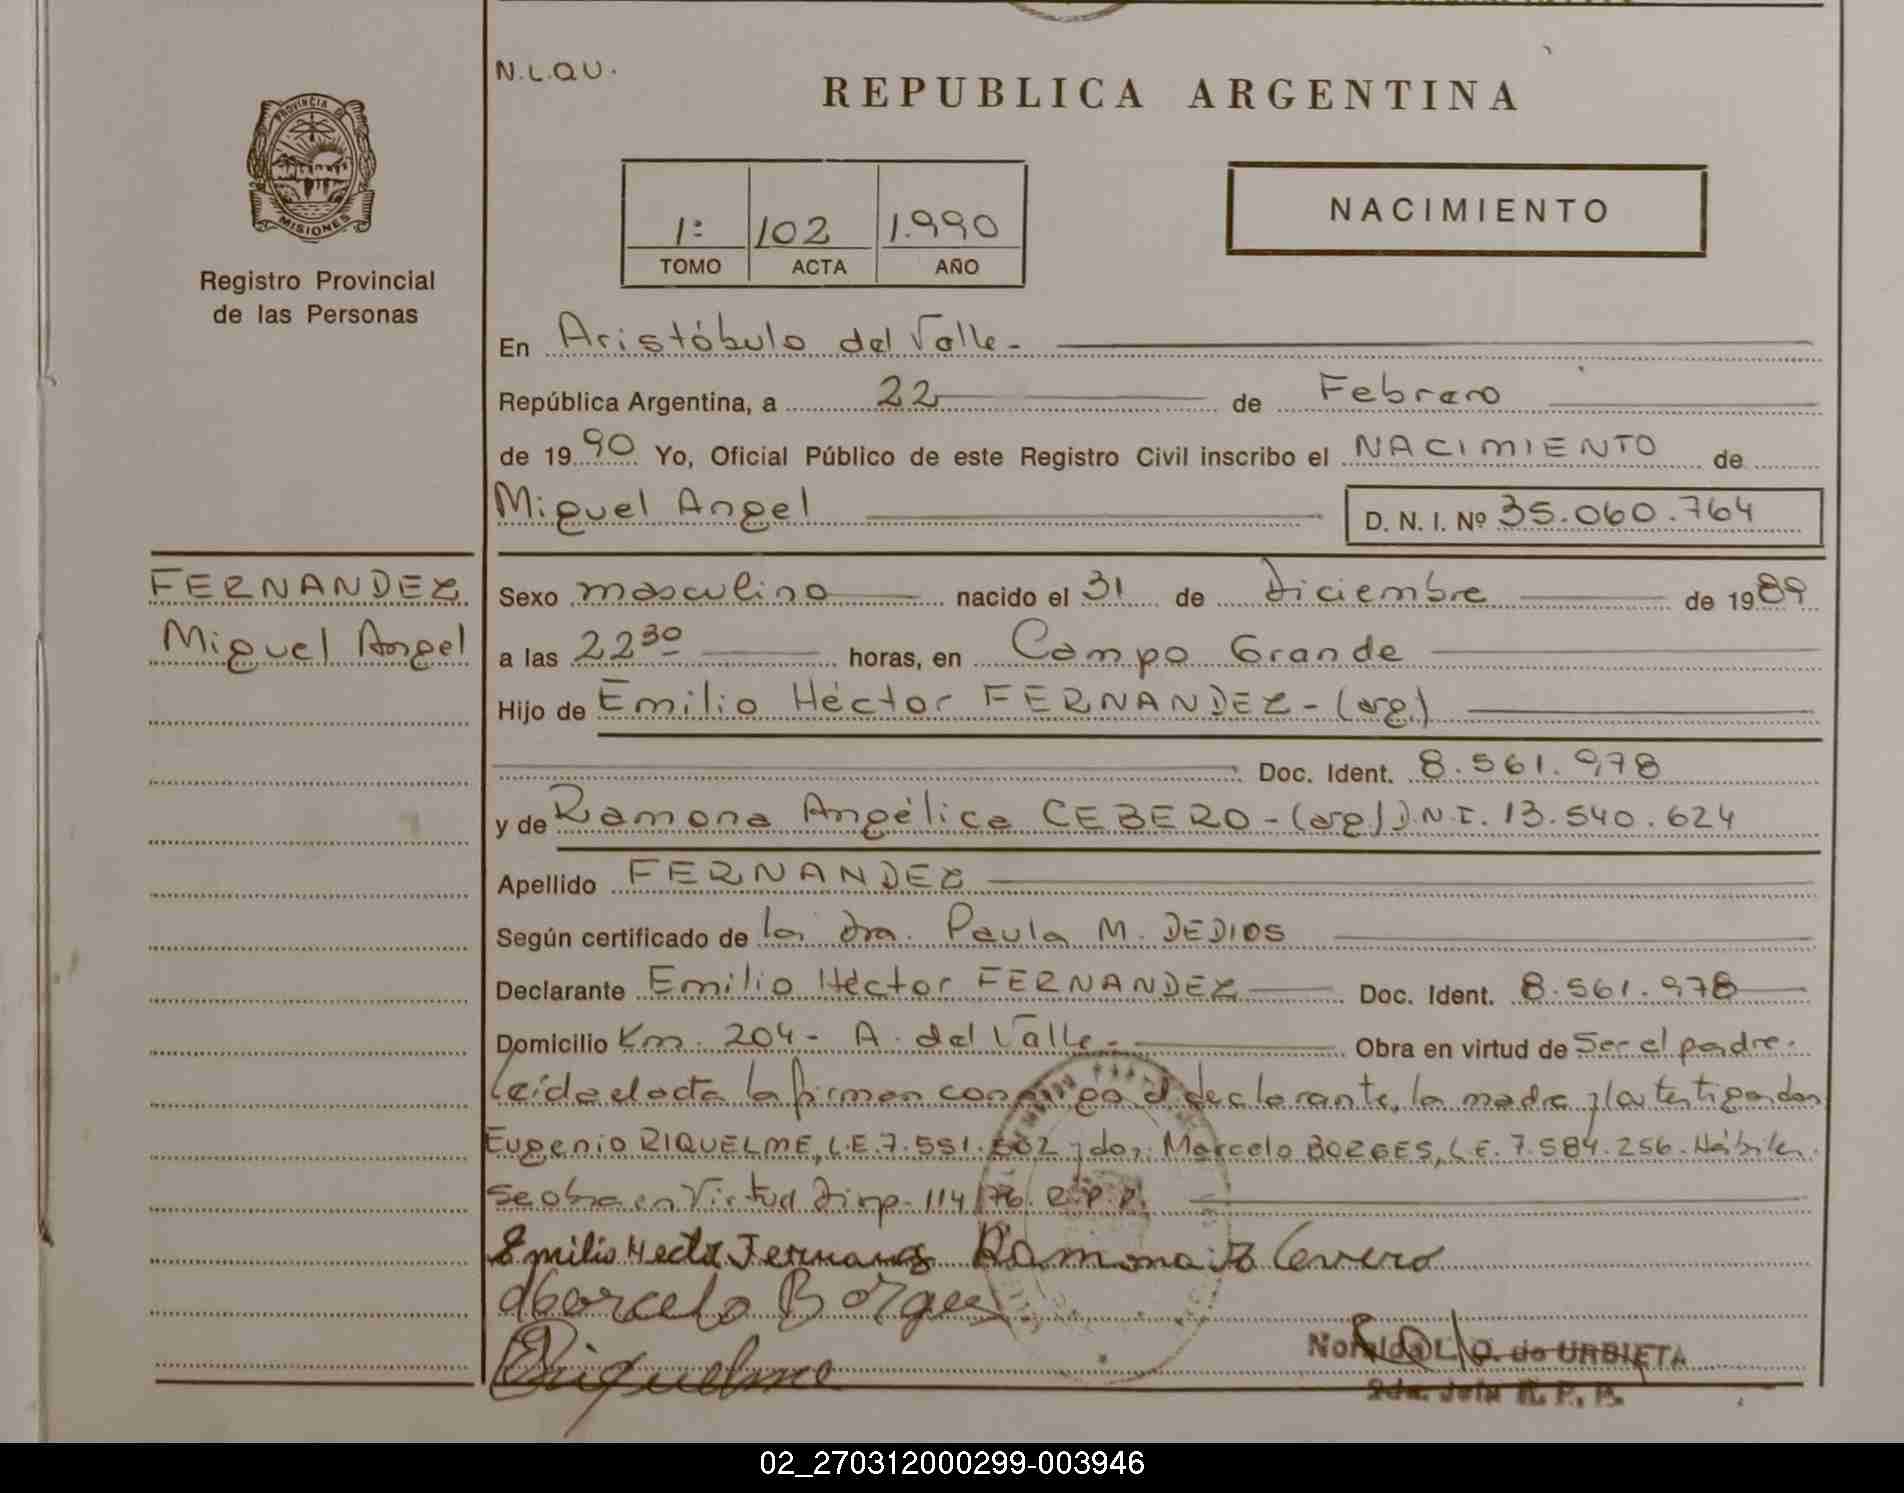 N.L.Q.U.
REPUBLICA ARGENTINA
PROVINCIA DE
MISIONES
Registro Provincial
de las Personas
1º 102 1.990
TOMO ACTA AÑO
NACIMIENTO
En Aristóbulo del Valle.-
República Argentina, a 22 de Febrero
de 1990 Yo, Oficial Público de este Registro Civil inscribo el NACIMIENTO de
Miguel Angel D. N. I. Nº 35.060.764
FERNANDEZ
Miguel Angel
Sexo masculino nacido el 31 de Diciembre de 1989
a las 22 30 horas, en Campo Grande
Hijo de Emilio Héctor FERNANDEZ - (arg.)
Doc. Ident. 8.561.978
y de Ramona Angélica CEBERO - (arg) D.N.I. 13.540.624
Apellido FERNANDEZ
Según certificado de la Dra. Paula M. DEDIOS
Declarante Emilio Héctor FERNANDEZ Doc. Ident. 8.561.978
Domicilio Km. 204 - A. del Valle.- Obra en virtud de Ser el padre.
Leída el acta la firman conmigo el declarante, la madre y los testigos don
Eugenio RIQUELME, L.E. 7.551. y don Marcelo BORGES, L.E. 7.584.256. Hábiles.
Se obra en Virtud Disp. 114/76. R.P.P.
Emilio Hector Fernandez Ramona Cevero
Marcelo Borges
Riquelme
L. O. de URBIETA
2da. Jefa R. P. P.
02_270312000299-003946